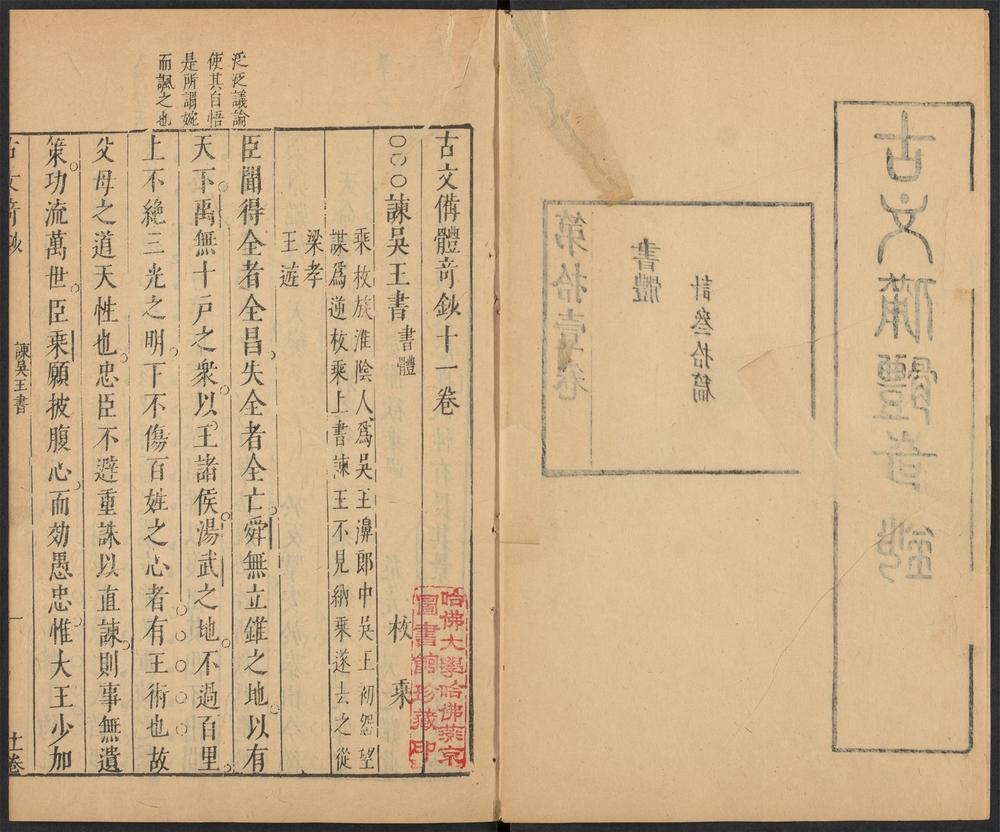 古文備體奇鈔
第拾壹卷
書體
計叄拾篇
泛泛議論
使其自悟
是所謂婉
而諷之也
古文備體奇鈔十一卷
○○○諫吳王書 書體 枚乘
乘枚族淮陰人爲吳王濞郎中吳王初怨望
謀爲逆枚乘上書諫王不見納乘遂去之從
梁孝
王遊
臣聞得全者全昌失全者全亡舜無立錐之地以有
天下禹無十戸之衆以王諸侯湯武之地不過百里
上不絶三光之明下不傷百姓之心者有王術也故
父母之道天性也忠臣不避重誅以直諫則事無遺
策功流萬世臣乘願披腹心而効愚忠惟大王少加
古文奇鈔 諫吳王書 一 十一卷
哈佛大學哈佛燕京
圖書館珍藏印